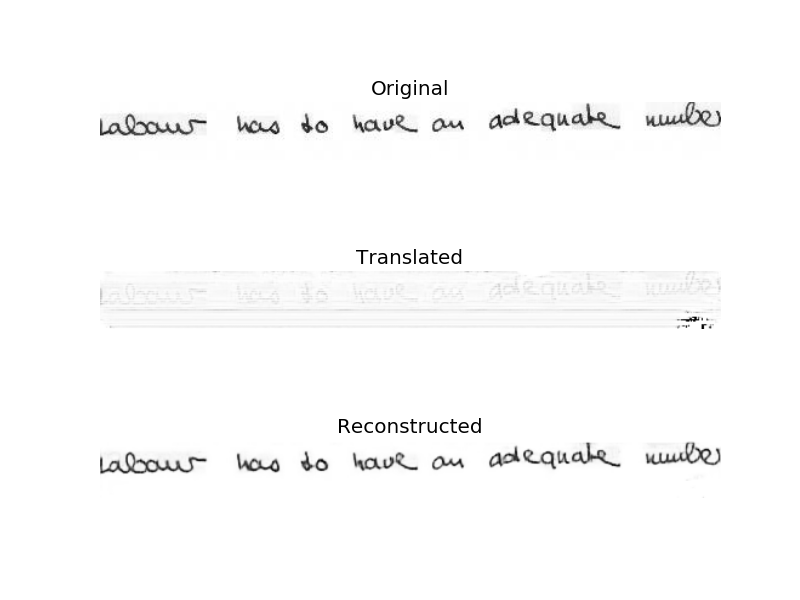 Original
Labour has to have an adequate number
Translated
Labour has to have an adequate number
Reconstructed
Labour has to have an adequate number